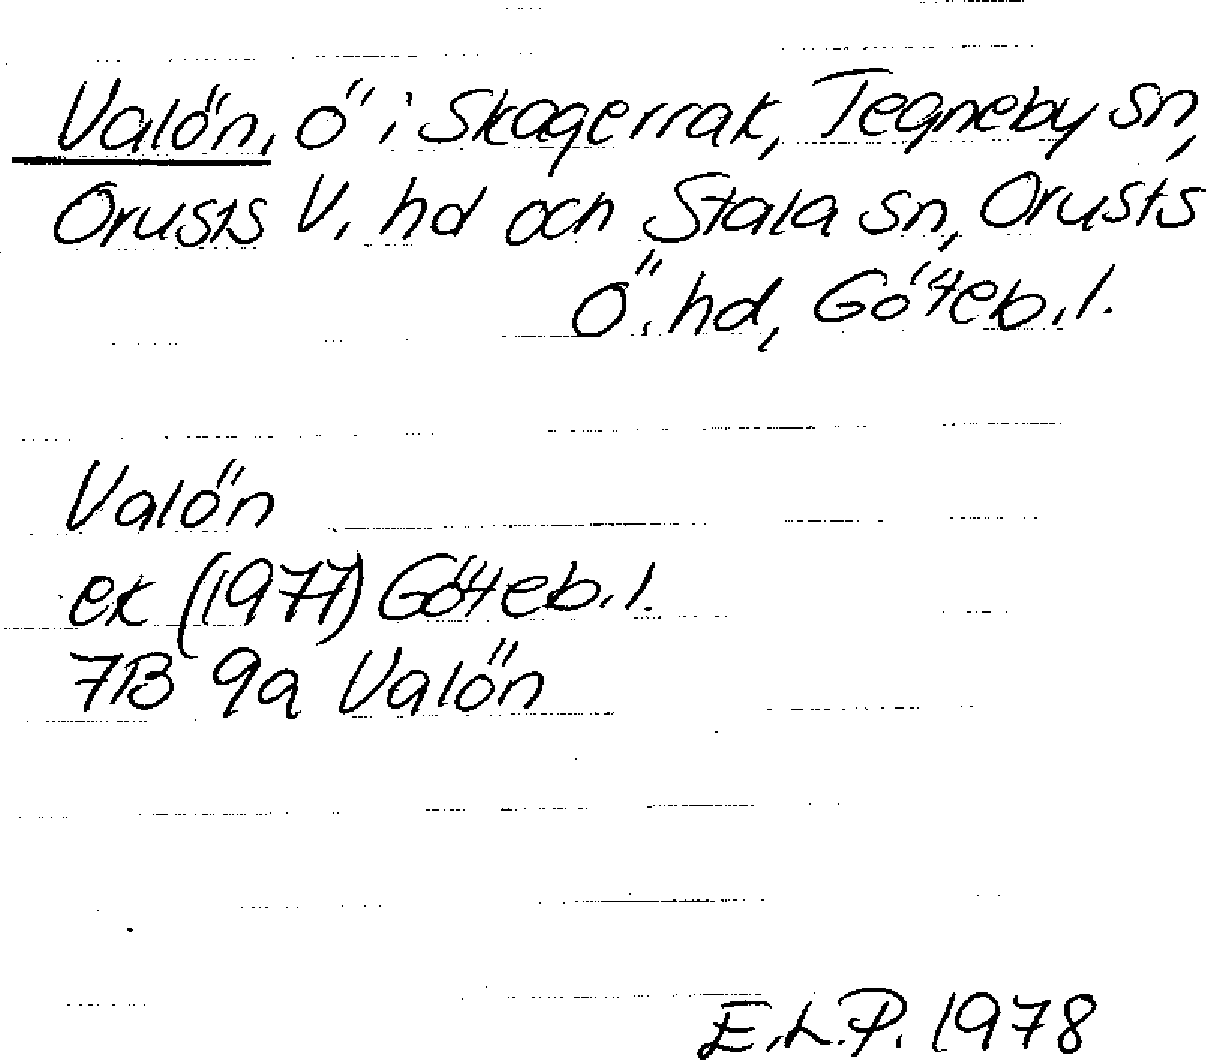 Valön, ö i Skagerrak, Tegneby sn,
Orusts V. hd och Stala sn, Orusts
Ö. hd, Göteb. l.
Valön
ek (1977) Göteb. l.
7B 9a Valön
E.L.P. 1978